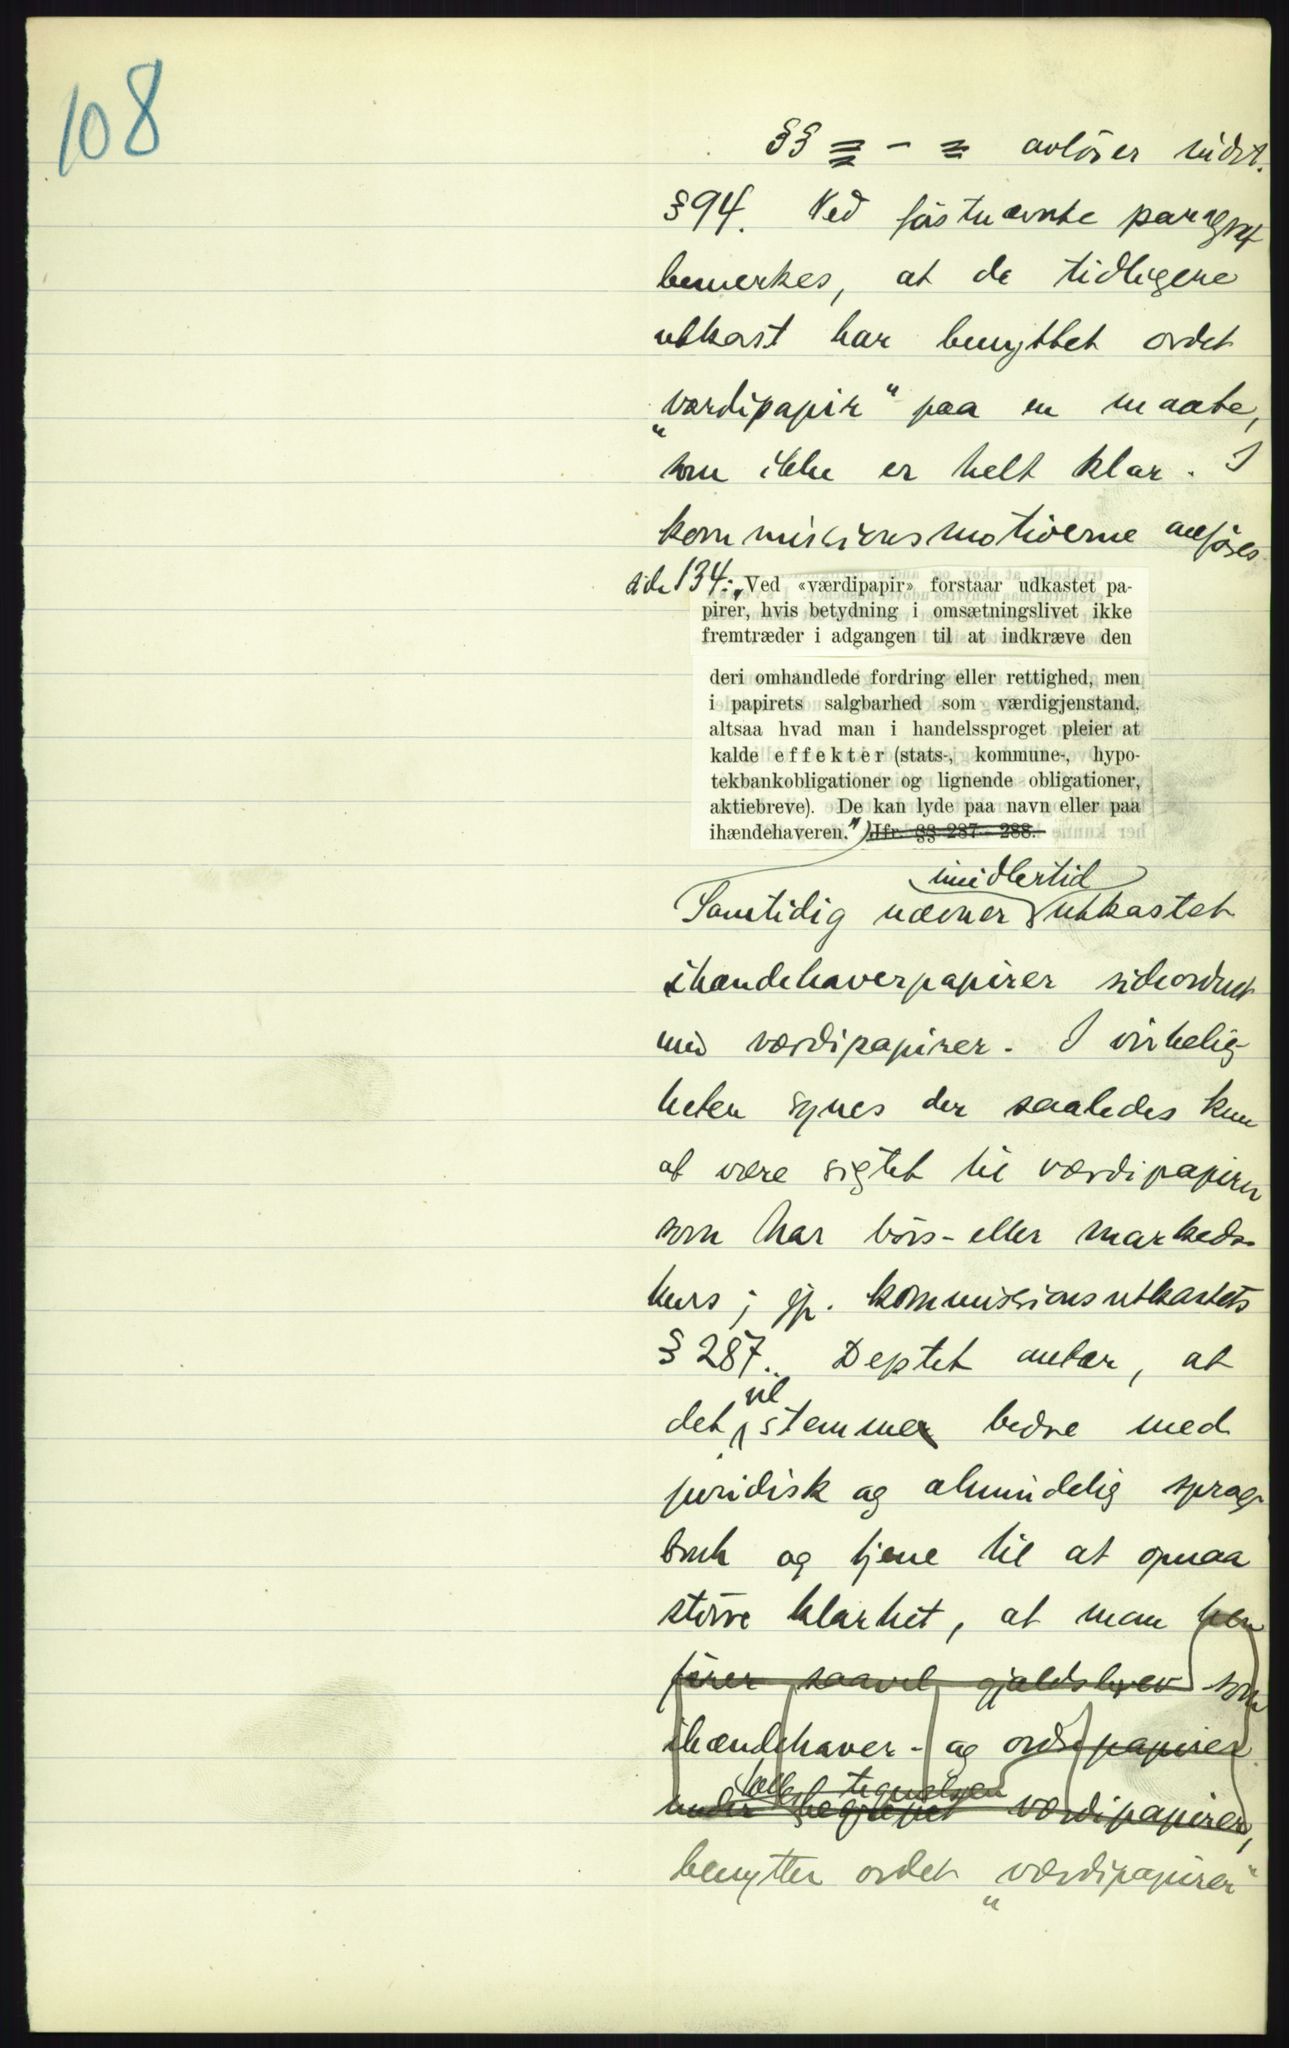 108
§§ = - = avløser indst.
§ 94. Ved førstnævnte paragraf
bemerkes, at de tidligere
utkast har benyttet ordet
„værdipapir“ paa en maate,
som ikke er helt klar. I
kommissionsmotiverne anføres
side 134: „Ved «værdipapir» forstaar udkastet pa-
pirer, hvis betydning i omsætningslivet ikke
fremtræder i adgangen til at indkræve den
deri omhandlede fordring eller rettighed, men
i papirets salgbarhed som værdigjenstand,
altsaa hvad man i handelssproget pleier at
kalde effekter (stats-, kommune-, hypo-
tekbankobligationer og lignende obligationer,
aktiebreve). De kan lyde paa navn eller paa
ihændehaveren.“ Jfr. §§ 287-288.
imidlertid
Samtidig nævner utkastet
ihændehaverpapirer sideordnet
med værdipapirer. I virkelig-
heten synes der saaledes kun
at være sigtet til værdipapirer
som har børs- eller markeds-
kurs; jfr. kommissionsutkastets
§ 287. Deptet antar, at
vil
det stemme bedre med
juridisk og almindelig sprog-
bruk og tjene til at opnaa
større klarhet, at man hen
fører saavel gjældsbrev som
ihændehaver- og ordrepapirer
tegnelsen
under begrepet værdipapirer,
benytter ordet „værdipapirer“